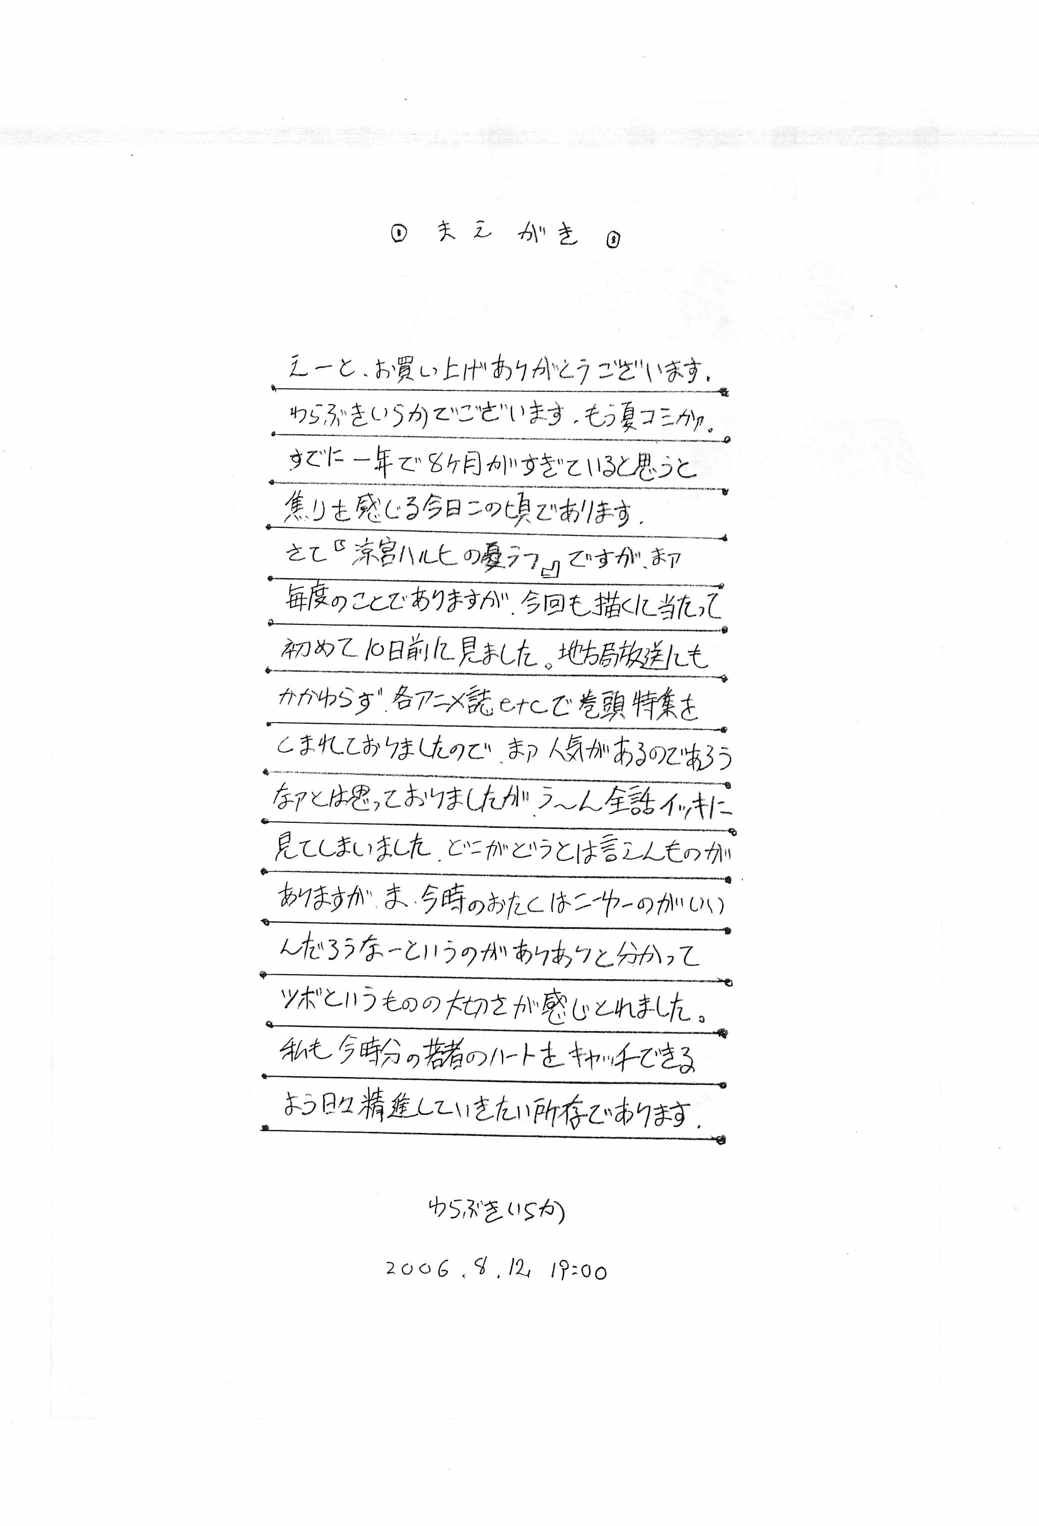 まえがき
えーと、お買い上げありがとうございます。
わらぶきいらかでございます。もう夏コミかァ。
すでに一年で8ケ月がすぎていると思うと
焦りを感じる今日この頃であります。
さて『涼宮ハルヒの憂ラフ』ですが、まァ
毎度のことでありますが、今回も描くに当たって
初めて10日前に見ました。地方局放送にも
かかわらず、各アニメ誌etcで巻頭特集を
しまれておりましたので、まァ人気があるのであろう
なァとは思っておりましたが、う〜ん全話イッキに
見てしまいました。どこがどうとは言えんものが
ありますが、ま、今時のおたくはこーゆーのがいい
んだろうなーというのがありありと分かって
ツボというものの大切さが感じとれました。
私も今時分の若者のハートをキャッチできる
よう日々精進していきたい所存であります。
わらぶきいらか
2006.8.12 19:00